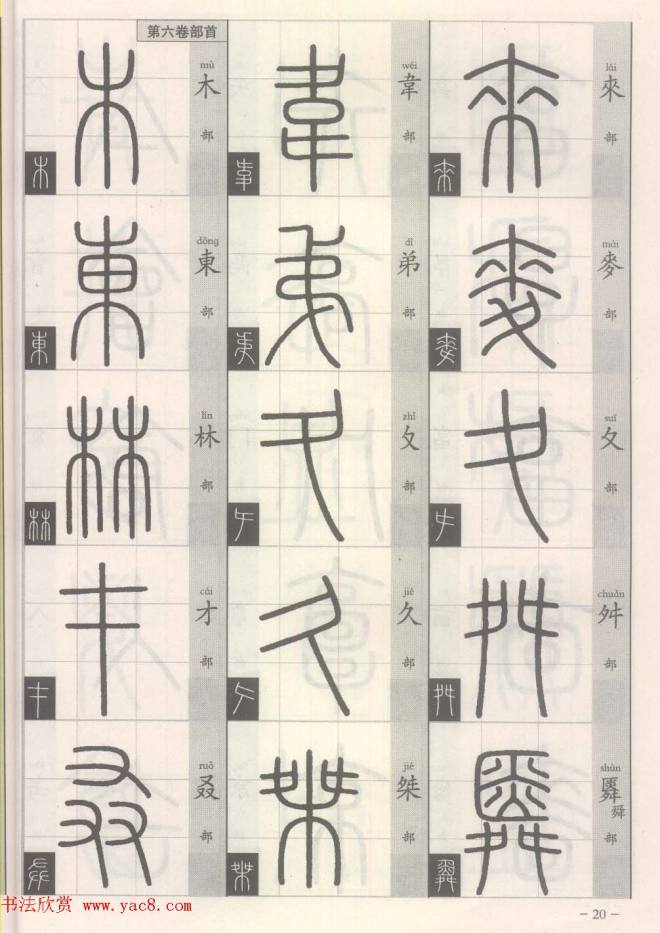 lái
來
部
mài
麥
部
suī
夊
部
chuǎn
舛
部
shùn
䑞舜
部
wéi
韋
部
dì
弟
部
zhǐ
夂
部
jié
久
部
jié
桀
部
第六卷部首
mù
木
部
dōng
東
部
lín
林
部
cái
才
部
ruò
叒
部
书法欣赏 www.yac8.com
－20－